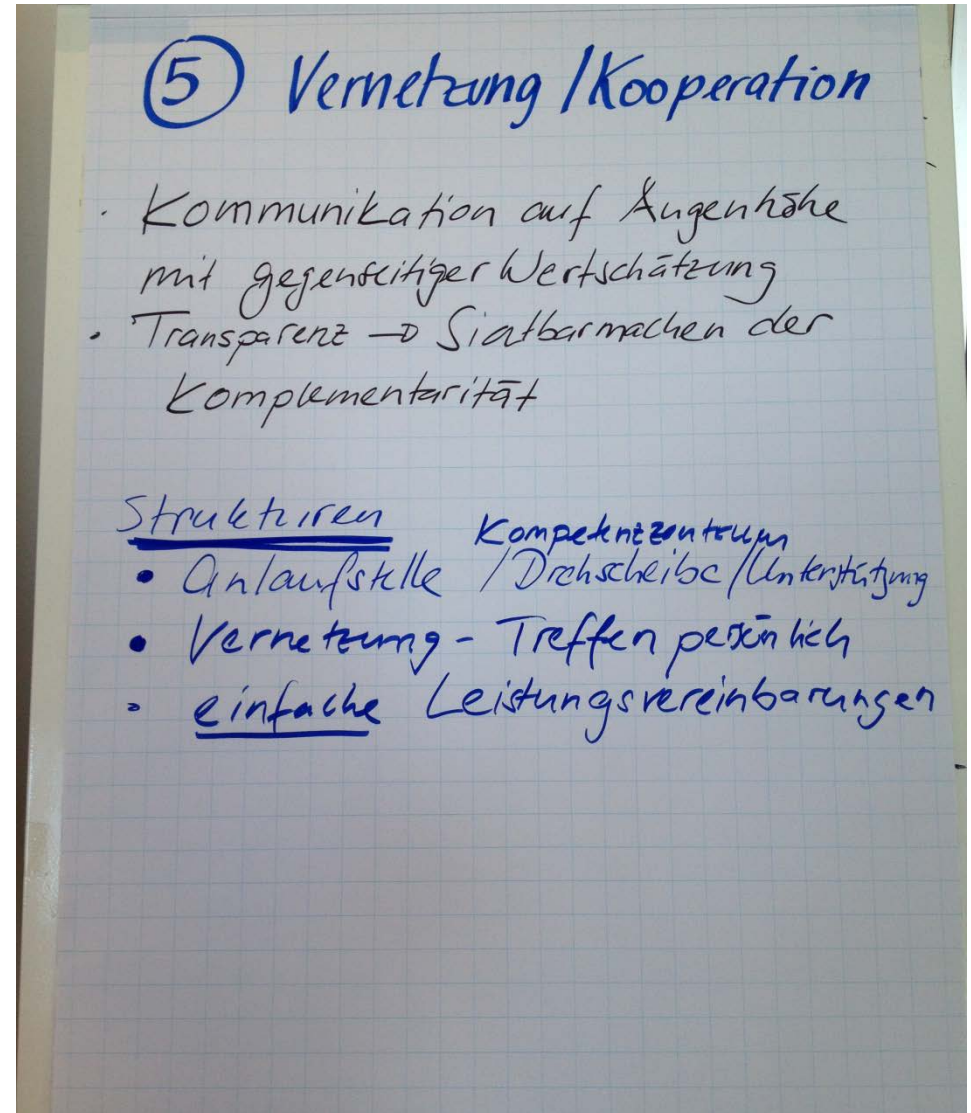 ⑤ Vernetzung / Kooperation
· Kommunikation auf Augenhöhe
mit gegenseitiger Wertschätzung
· Transparenz → Sichtbarmachen der
Komplementarität
Strukturen
Kompetenzzentrum
• Anlaufstelle / Drehscheibe / Unterstützung
• Vernetzung - Treffen persönlich
• einfache Leistungsvereinbarungen